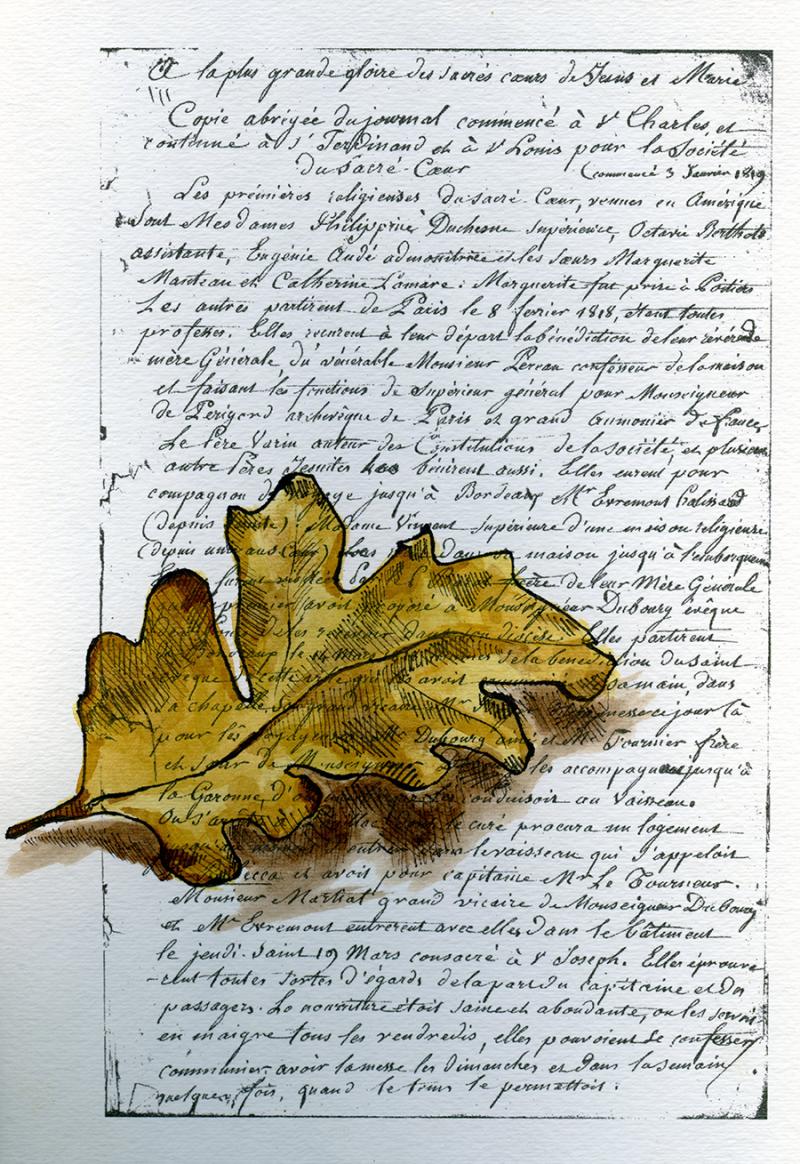 A la plus grande gloire des Sacrés cœurs de Jesus et Marie
Copie abrégée du journal commencé à St Charles, et
continué à St Ferdinand et à St Louis pour la Société
du Sacré-Cœur (commencé 3 Janvier 1819
Les premières religieuses du Sacré-Cœur, venues en Amérique
Sont Mesdames Philippine Duchesne Supérieure, Octavie Berthold
assistante, Eugénie Audé admonitrice et les Sœurs Marguerite
Manteau et Catherine Lamare: Marguerite fut prise à Poitiers
Les autres partirent de Paris le 8 fevrier 1818, étant toutes
professes. Elles reçurent à leur départ la bénédiction de leur révérende
mère Générale du vénérable Monsieur Perreau confesseur de la maison
et faisant les fonctions de Supérieur général pour Monseigneur
de Perigord archevêque de Paris et grand Aumonier de france,
Le Père Varin auteur des Constitutions de la Société, et plusieurs
autre Pères Jesuites les bénirent aussi. Elles eurent pour
compagnon de voyage jusqu'à Bordeaux Mr Evremont
(depuis : Madame Vincent Supérieure d'une maison religieuse
(depuis au Sacré Cœur) dans maison jusqu'à l'embarquement
frère de leur Mère Générale
premier avoit proposé à Monseigneur Dubourg évêque
de les recevoir dans son diocèse. Elles partirent
de Bordeaux le Mars de la bénédiction du Saint
évêque de cette ville qui avoit Sa main, dans
Sa chapelle Son grand vicaire Mr messe ce jour là
pour les voyageuses. Mr Dubourg ainé et Mr Fournier frère
et Sœur de Monseigneur les accompagna jusqu'à
la Garonne, d'où conduisoit au Vaisseau.
le cure procura un logement
d'entrer dans le vaisseau qui s'appeloit
Rebecca et avoit pour capitaine Mr Le Tourneur.
Monsieur Martial grand vicaire de Monseigneur Dubourg
et Mr Evremont entrerent avec elles dans le bâtiment
le jeudi-Saint 19 Mars consacré à St Joseph. Elles éprouvè-
-rent toutes Sortes d'égards de la part du capitaine et des
passagers. La nourriture étoit Saine et abondante, on les Servoit
en maigre tous les vendredis, elles pouvoient Se confesser,
communier, avoir la messe les Dimanches et dans la Semaine
quelquefois, quand le tems le permettoit.